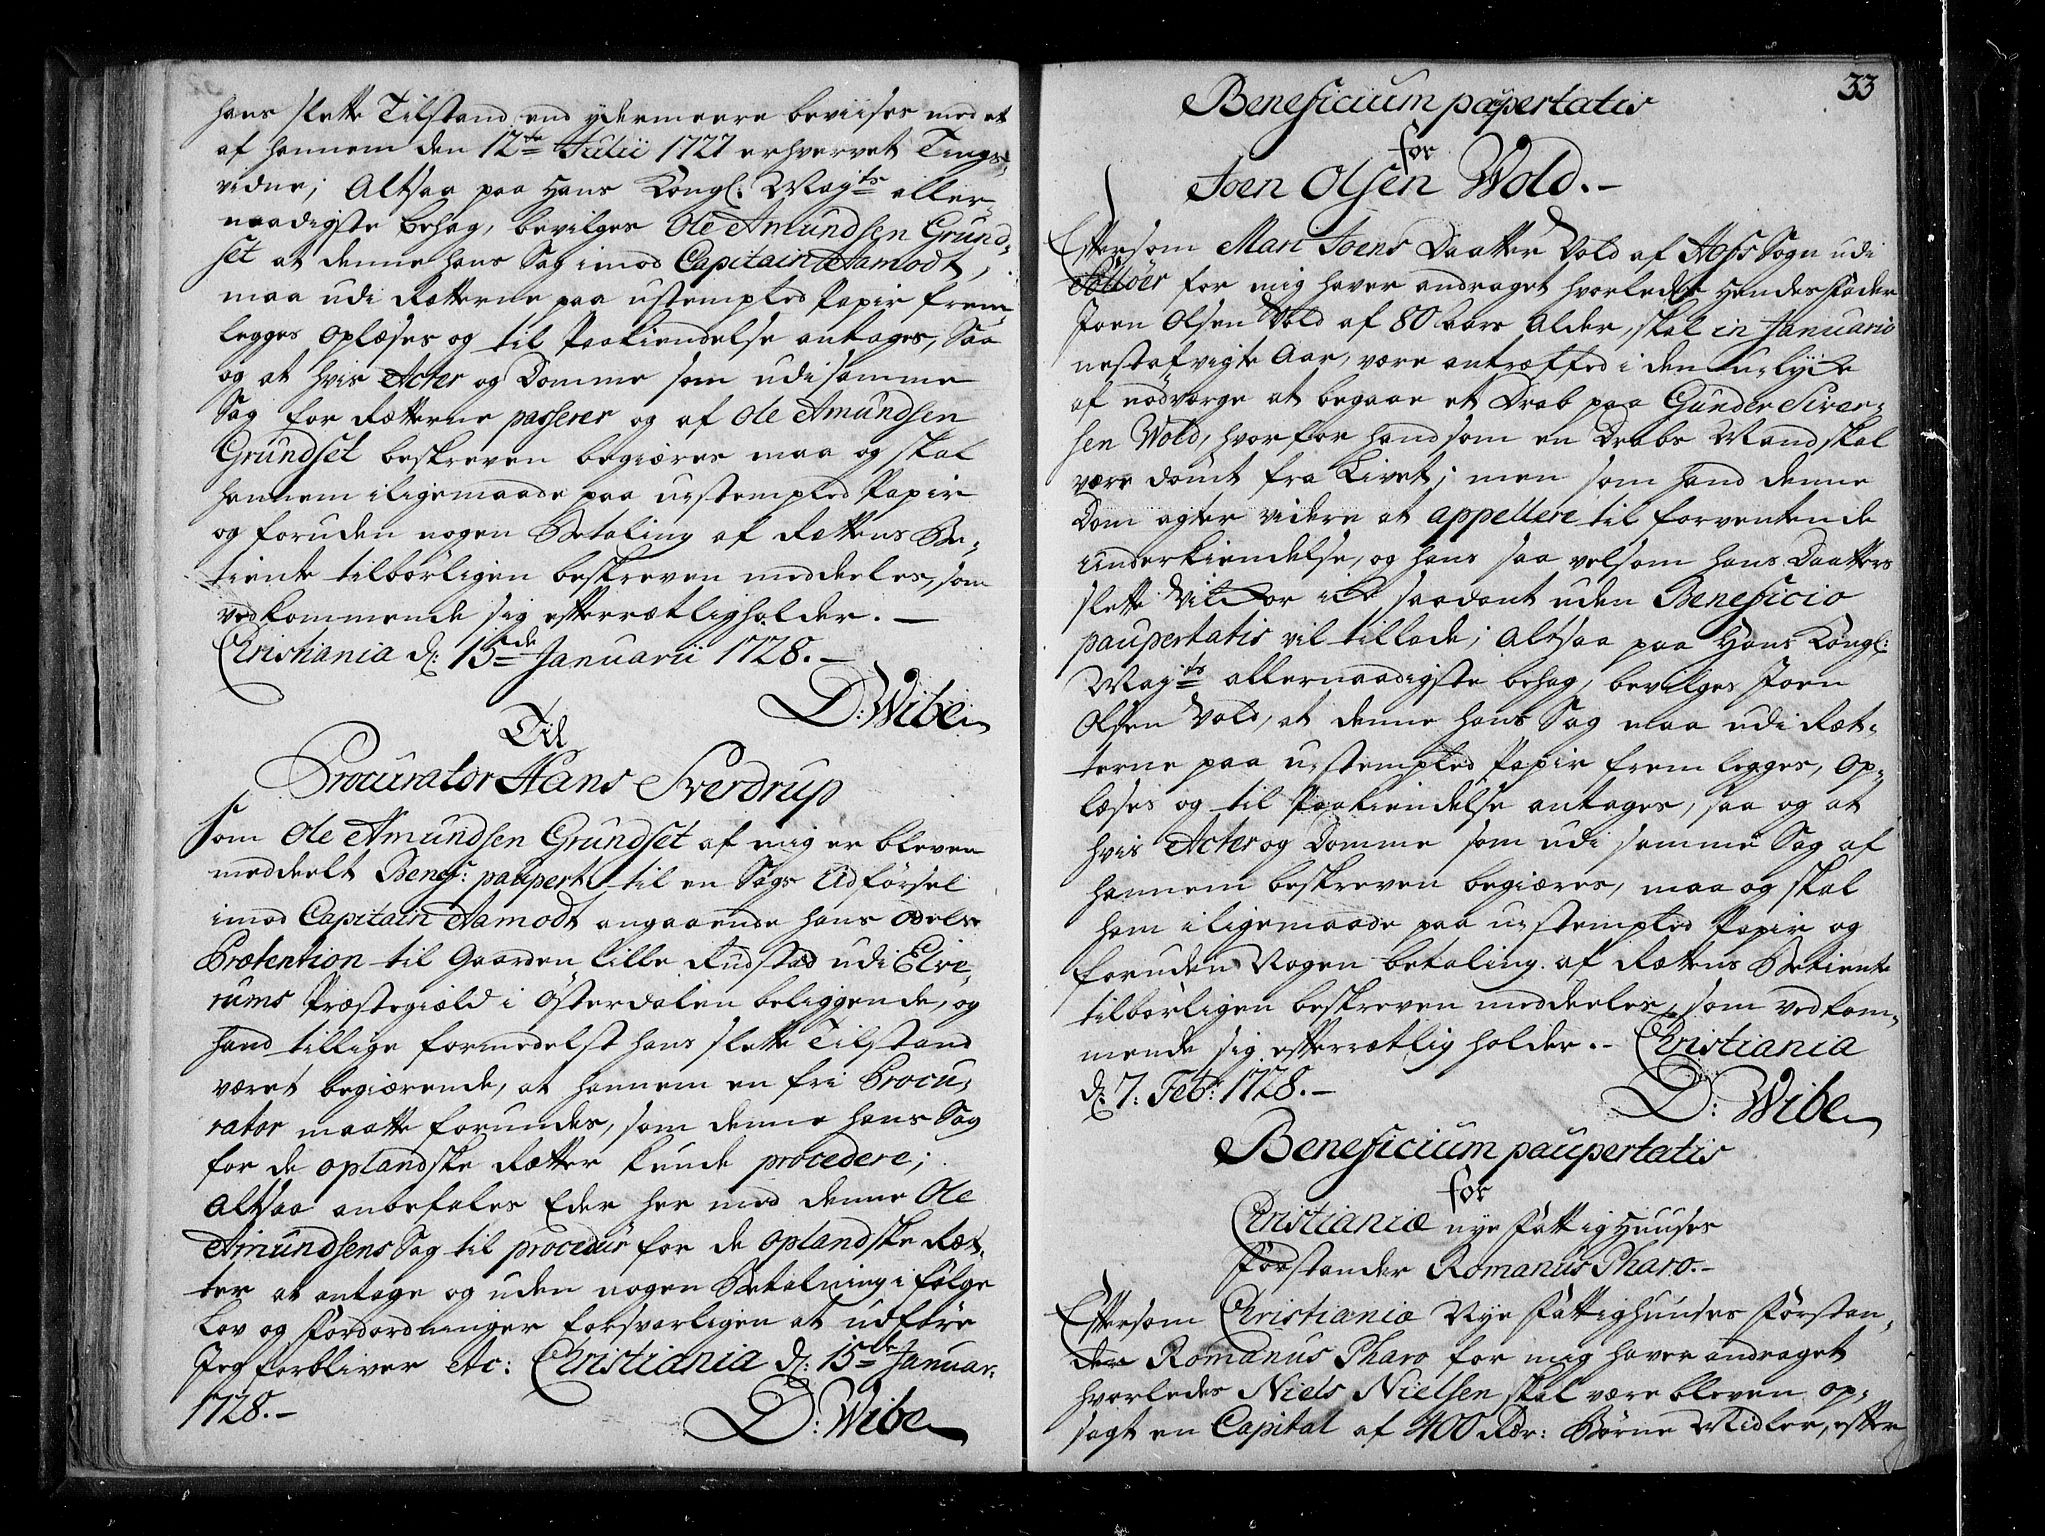 hans slette Tilstand end ydermeere beviises med et
af hannem den 12te Julii 1727 erhvervet Tings-
vidne; Altsaa paa Hans Kongl: Mayts aller-
naadigste behag, bevilges Ole Amundsen Grund-
set at denne hans Sag imod Capitain Aamodt,
maa udi Retterne paa ustempled Papir frem-
legges oplæses og til Paakiendelse antages, Saa
og at hvis Acter og Domme som udi samme
Sag for Retterne passerer og af Ole Amundsen
Grundset beskreven begiæres maa og skal
hannem iligemaade paa ustempled Papir
og foruden nogen Betaling af Rettens Be-
tiente tilbørligen beskreven meddeeles, som
vedkommende sig efterrætlig holder. —
Christiania d: 15de Januarii 1728. —
D: Wibe
Til
Procurator Hans Sverdrup
Som Ole Amundsen Grundset af mig er bleven
meddeelt Benef: paupert: til en Sags Udførsel
imod Capitain Aamodt angaaende hans Odels
Prætention til Gaarden Lille Rudstad udi Elve-
rums Præstegiæld i Østerdalen beliggende, og
hand tillige formedelst hans slette Tilstand
været begiærende, at hannem en fri Procu-
rator maatte forundes, som denne hans Sag
for de oplandske Retter kunde procedere;
Altsaa anbefales Eder her med denne Ole
Amundsens Sag til procedur for de oplandske Ret-
ter at antage og uden nogen Betalning i følge
Lov og Fordordninger forsvarligen at udføre
Jeg forbliver etc: Christiania d: 15de Januar:
1728. —
D: Wibe
33
Beneficium paupertatis
for
Joen Olsen Wold. —
Eftersom Mari Joens Daatter Vold af Aass Sogn udi
Solløer for mig haver andraget hvorledes Hendes Fader
Joen Olsen Vold af 80 aars Alder, skal in Januario
nestafvigte Aar, være antræffed i den ulykke
af nødværge at begaae et Drab paa Gunder Siver-
sen Wold, hvorfor hand som en Drabs Mand skal
være dømt fra Livet; men som hand denne
Dom agter videre at appellere til forventende
underkiendelse, og hans saa velsom hans Daatters
slette Vilkor ike saadant uden Beneficio
paupertatis vil tillade; Altsaa paa Hans Kongl:
Mayts allernaadigste behag, bevilges Joen
Olsen Vold, at denne hans Sag maa udi Ret-
terne paa ustempled Papir frem legges, op-
læses og til Paakiendelse antages, saa og at
hvis Acter og Domme som udi samme Sag af
hannem beskreven begiæres, maa og skal
ham iligemaade paa ustempled Papir og
foruden Nogen betaling af Rettens Betiente
tilbørligen beskreven meddeeles, som vedkom-
mende sig efterrætlig holder. — Christiania
d: 7: Febr: 1728. —
D: Wibe
Beneficium paupertatis
for
Christianiæ nye Fattig Huuses
Forstander Romanus Pharo. —
Eftersom Christianiæ Nye Fattighuuses Forstan-
der Romanus Pharo for mig haver andraget
hvorledes Niels Nielsen skal være bleven op-
sagt en Capital af 400 Rdr: Børne Midler, efter